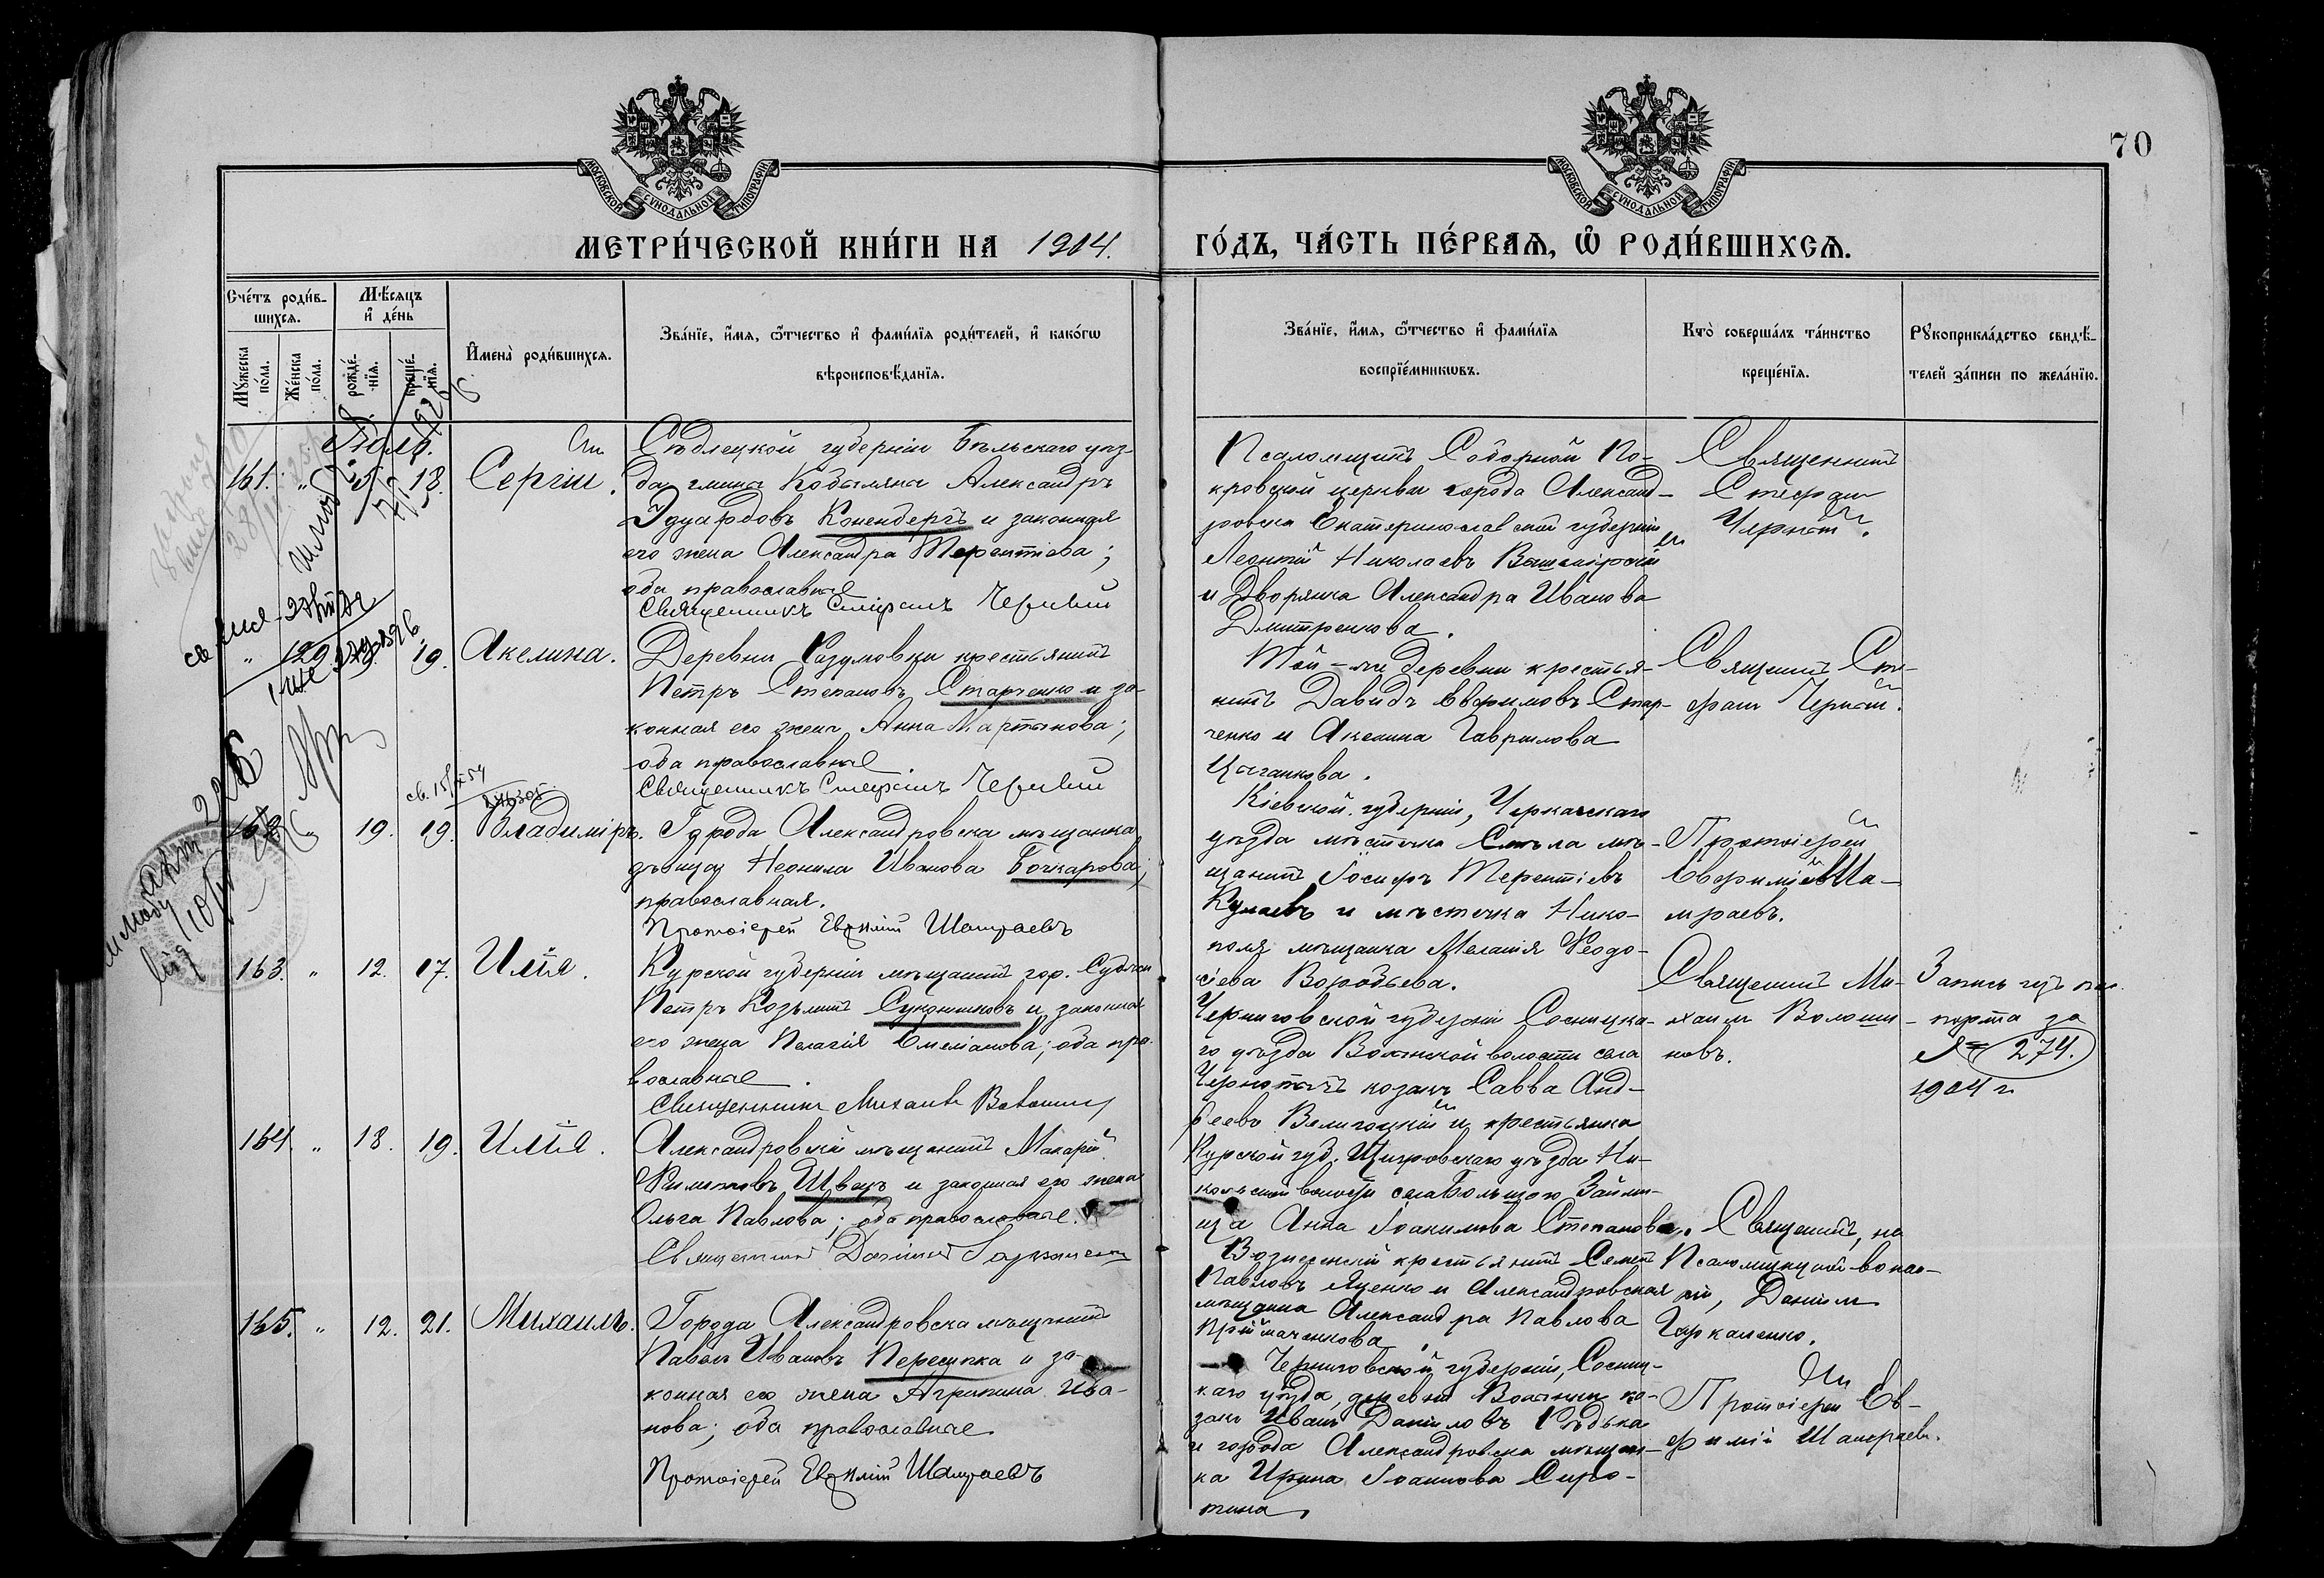 70
МОСКОВСКОЙ СѴНОДАЛЬНОЙ ТИПОГРАФІИ
МОСКОВСКОЙ СѴНОДАЛЬНОЙ ТИПОГРАФІИ
МЕТРИ́ЧЕСКОЙ КНИ́ГИ НА 1904.
ГО́ДЪ, ЧА́СТЬ ПЕ́РВАѦ, Ѿ РОДИ́ВШИХСѦ.
Сче́тъ роди́в-
шихсѧ.
Мꙋ́жеска по́ла.
Же́нска по́ла.
Мѣ́сяцъ
и҆ де́нь
рожде́-
нїѧ.
креще́-
нїѧ.
И҆мена̀ роди́вшихсѧ.
Зва́нїе, и҆́мѧ, ѻ҆́тчество и҆ фами́лїѧ роди́телей, и҆ како́гѡ
вѣроисповѣ́данїѧ.
Зва́нїе, и҆́мѧ, ѻ҆́тчество и҆ фами́лїѧ
воспрїе́мникѡвъ.
Кто̀ соверша́лъ та́инство
креще́нїѧ.
Рꙋкоприкла́дство свидѣ́-
телей за́писи по жела́нїю.
Іюль.
161. " 5. 18. Сергій.
Сѣдлецкой губерніи Бѣльскаго уѣз-
да гмины Кобыляны Александръ
Эдуардовъ Коненбергъ и законная
его жена Александра Терентіева;
оба православные
Священникъ Стефанъ Черный
Псаломщикъ Соборной По-
кровской церкви города Александ-
ровска Екатеринославской губерніи
Леонтій Николаевъ
и Дворянка Александра Иванова
Дмитренкова.
Священникъ
Стефанъ
Черный.
" 120 19. Акелина.
Деревни Разумовки крестьянинъ
Петръ Степановъ Старченко и за-
конная его жена Анна Мартынова;
оба православные
Священникъ Стефанъ Черный
Той-же деревни крестья-
нинъ Давидъ Евфимовъ Стар-
ченко и Акелина Гаврилова
Цыганкова.
Священникъ Сте-
фанъ Черный.
19. 19. Владиміръ.
Города Александровска мѣщанка
дѣвица Неонила Иванова Бочкарова;
православная.
Протоіерей Евѳимій Шамраевъ
Кіевской губерніи, Черкасскаго
уѣзда мѣстечка Смѣла мѣ-
щанинъ Іосифъ Терентіевъ
и мѣстечка Нико-
поля мѣщанка Меланія Ѳеодо-
сіева Воробьева.
Протоіерей
Евфимій Ша-
мраевъ.
163. " 12. 17. Илія.
Курской губерніи мѣщанинъ гор. Суджи
Петръ Козьминъ Суконниковъ и законная
его жена Пелагія Емеліанова; оба пра-
вославные.
Священникъ Михаилъ Волошин
Черниговской губерніи Сосницка-
го уѣзда Волынской волости села
козакъ Савва Анд-
реевъ Велигоцкій и крестьянка
Курской губ. Щигровскаго уѣзда Ни-
кольской волости села Большого Займи-
ща Анна Іоакимова Степанова.
Священникъ Ми-
хаилъ Волоши-
новъ.
Запись изъ пас-
порта за
№ 274.
1904 г.
164. " 18. 19. Илія.
Александровскій мѣщанинъ Макарій
Филиповъ Швецъ и законная его жена
Ольга Павлова; оба православные.
Священникъ Даніилъ Гаркаленко
Вознесенскій крестьянинъ Семенъ
Павловъ Яценко и Александровская
мѣщанка Александра Павлова
Приймаченкова
Священникъ, на
Псаломщицкой вокан-
сіи, Даніилъ
Гаркаленко.
165. " 12. 21. Михаилъ.
Города Александровска мѣщанинъ
Павелъ Ивановъ Пересипка и за-
конная его жена Агрипина Ива-
нова; оба православные
Протоіерей Евѳимій Шамраевъ
Черниговской губерніи, Сосниц-
каго уѣзда, деревни Волынки ко-
закъ Иванъ Даниловъ Рѣдька
и города Александровска мѣщан-
ка Ирина Іоаннова Сиро-
тина
Протоіерей Ев-
фимій Шамраевъ.